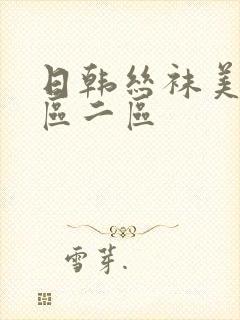 日韩丝袜美
區二區
雪芽.